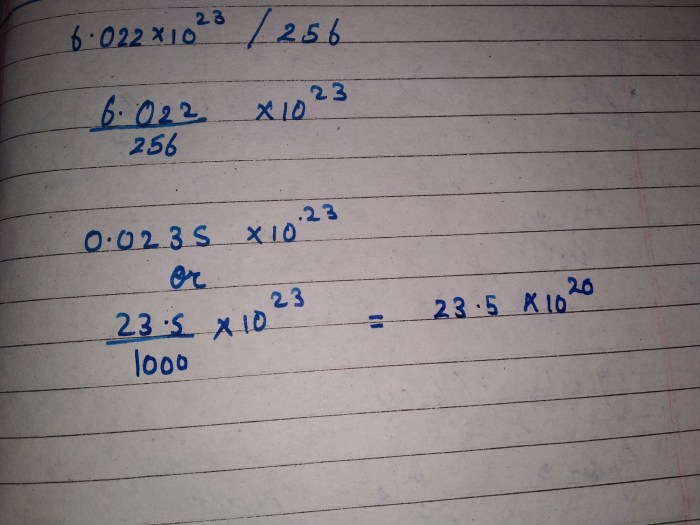 6.022×10²³ / 256
6.022/256 ×10²³
0.0235 ×10²³
or
23.5/1000 ×10²³ = 23.5 ×10²⁰